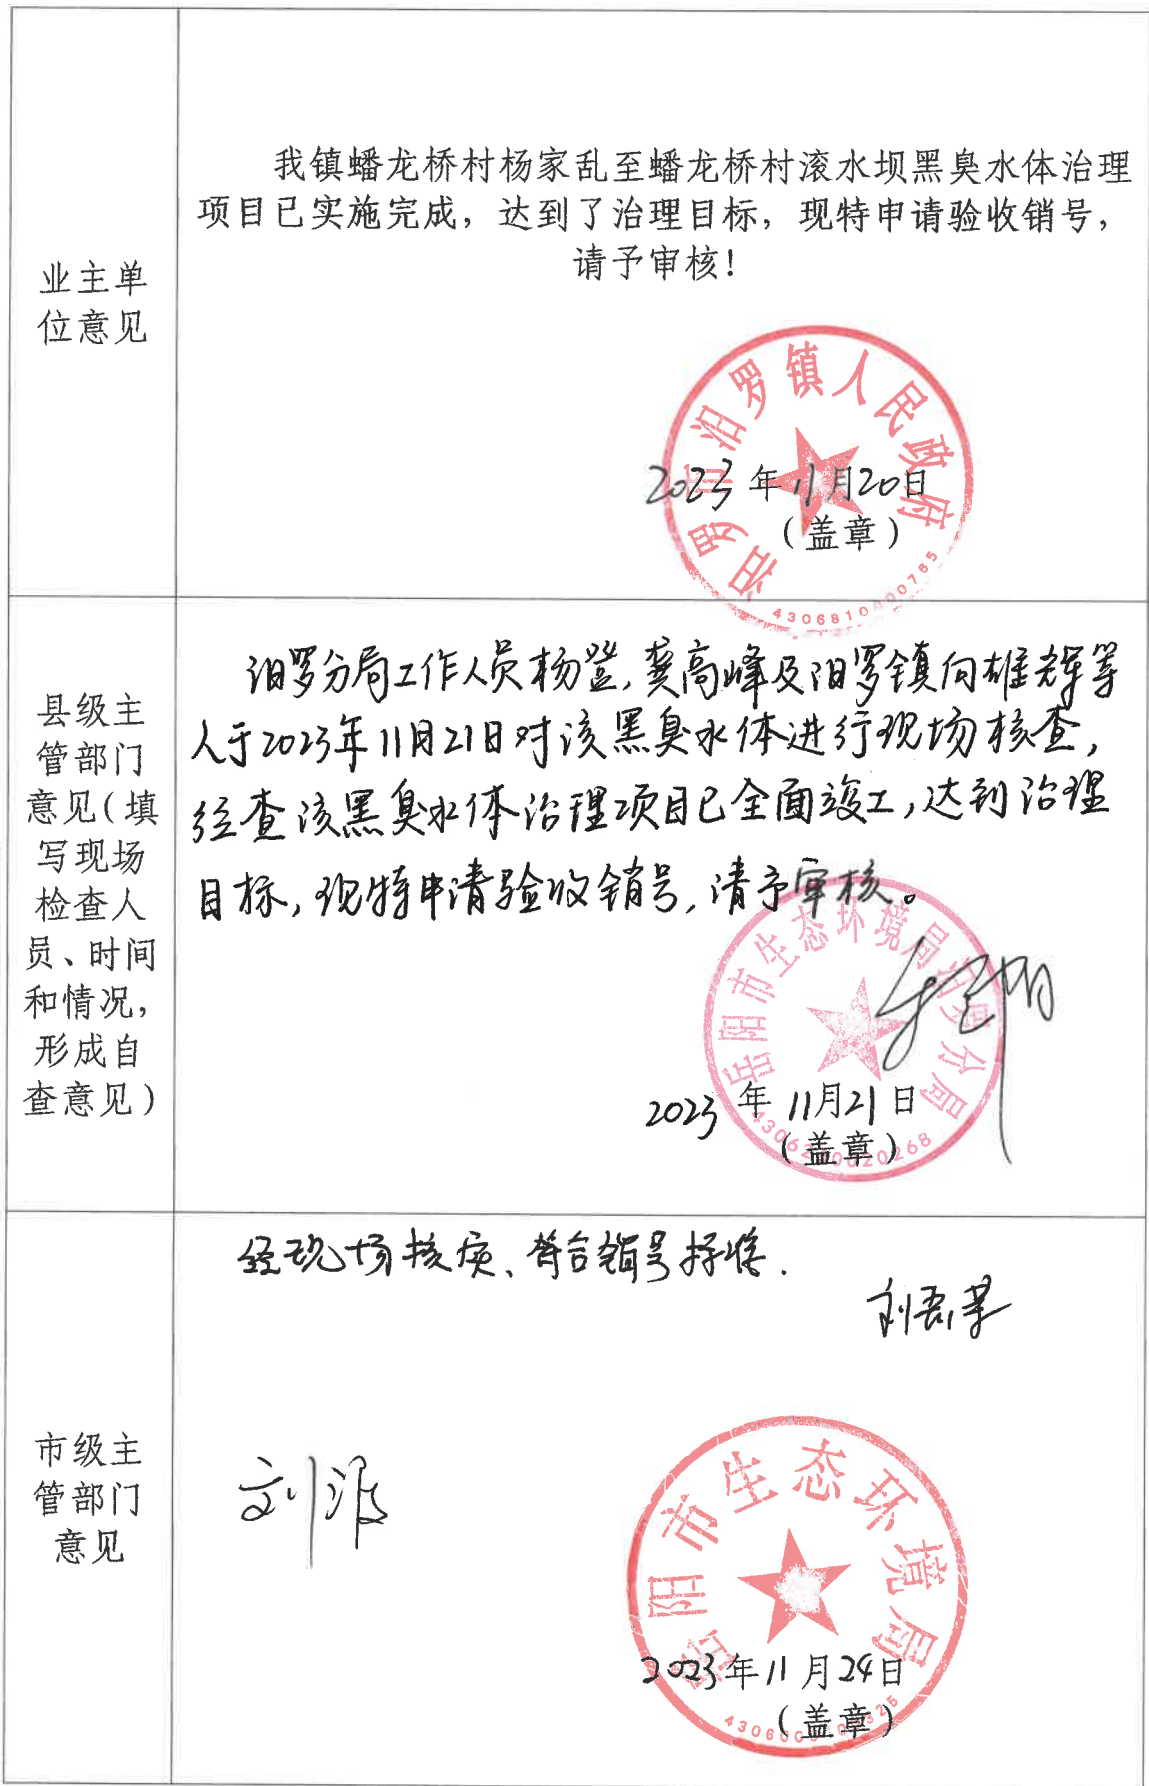 业主单
位意见
我镇蟠龙桥村杨家乱至蟠龙桥村滚水坝黑臭水体治理
项目已实施完成，达到了治理目标，现特申请验收销号，
请予审核！
汨罗市汨罗镇人民政府
2023年11月20日
（盖章）
县级主
管部门
意见（填
写现场
检查人
员、时间
和情况，
形成自
查意见）
汨罗分局工作人员杨登，龚高峰及汨罗镇向雄辉等
人于2023年11月21日对该黑臭水体进行现场核查，
经查该黑臭水体治理项目已全面竣工，达到治理
目标，现特申请验收销号，请予审核。
岳阳市生态环境局汨罗分局
2023年11月21日
（盖章）
市级主
管部门
意见
经现场核实、符合销号标准.
岳阳市生态环境局
2023年11月24日
（盖章）